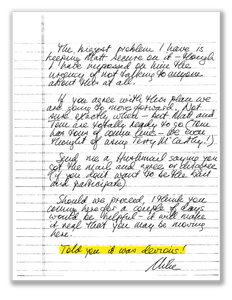 The biggest problem I have is
keeping Matt secure on it - though
I have imposed on him the
urgency of not talking to anyone
about this at all.
If you agree with this plan we
are going to move forward. Not
sure exactly when - but Matt and
Tom are totally ready to go (Tom
has tons of - we even
thought of using Terry McCarthy!)
Send me a Hushmail saying you
got the mail and agree or
(if you don't want to be the bait
and participate).
Should we proceed, I think you
coming here for a couple of days
would be helpful - it will make
it real that you may be moving
here.
Told you it was devious!
Mike